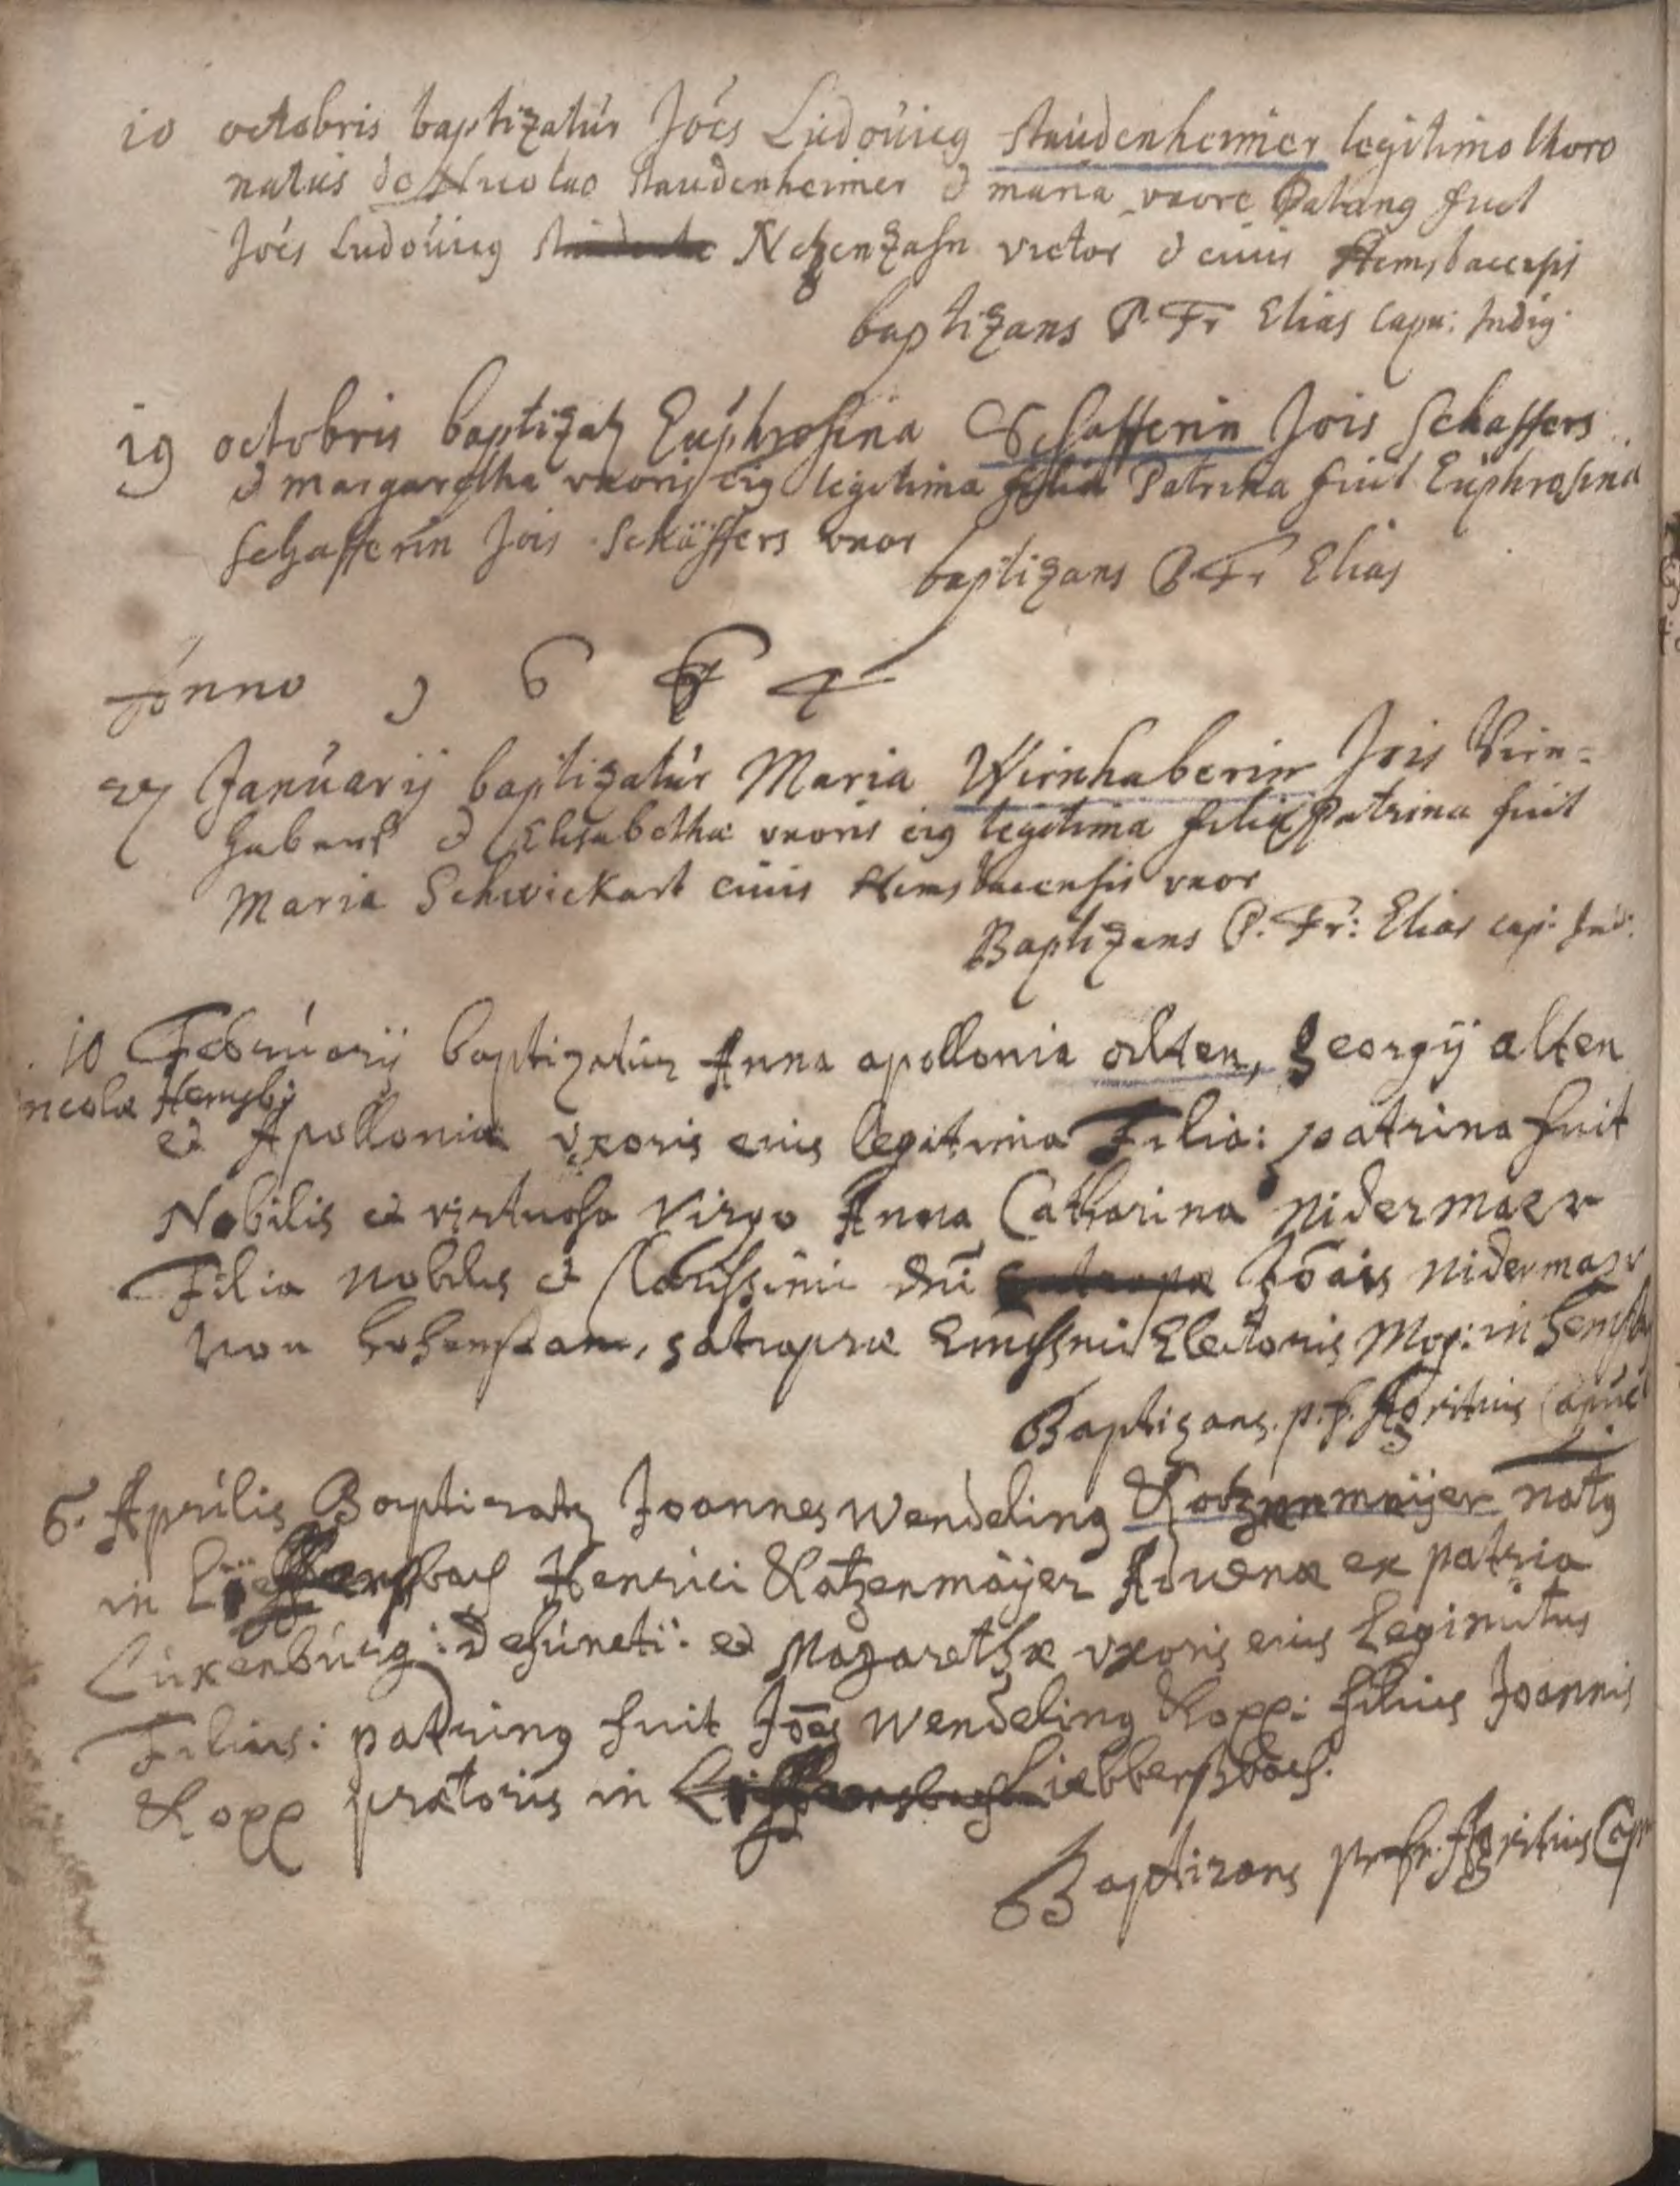 10 octobris baptizatur Joes Ludouicg Staudenheimer legitimo thoro
natus de Nicolao Staudenheimer et maria uxore Patring fuit
Joes Ludouicg Netzenzahn victor et ciuis Hemsbacensis
baptizans P. Fr Elias Capu: Indig.
19 octobris baptizatg Euphrosina Schafferin Jois Schaffers
et margaretha uxoris eig legitima filia Patrina fuit Euphrosina
Schafferin Jois Schäffers uxor
baptizans P. Fr Elias
Anno 1 6 6 4
27 Januarij baptizatur Maria Wirnhaberin Jois Virn=
habers et Elisabethæ uxoris eig legitima filia Patrina fuit
Maria Schwickart ciuis Hemsbacensis uxor
Baptizans P. Fr: Elias cap: Ind:
10 Februarij baptizatur Anna apollonia alten, georgij alten
incolæ Hemsb:
et Apolloniæ uxoris eius legitima Filia: patrina fuit
Nobilis et virtuosa virgo Anna Catharina nidermaer
Filia nobilis et Clarissimi dni Joais nidermaer
von, satrapæ Emissmi Electoris Mog: in hemsb
Baptizans. p. f. Agritius Capuc
6. Aprilis Baptizatg Joannes wendeling Katzenmaijer natg
in Henrici Katzenmäijer Aduenæ ex patria
Luxenburg: defuncti: et Magarethæ uxoris eius Legimitus
Filius: patring fuit Joes wendeling Kopp: filius Joannis
Kopp prætoris in Liebberssbach.
Baptizans pr. fr. Agritius Cap